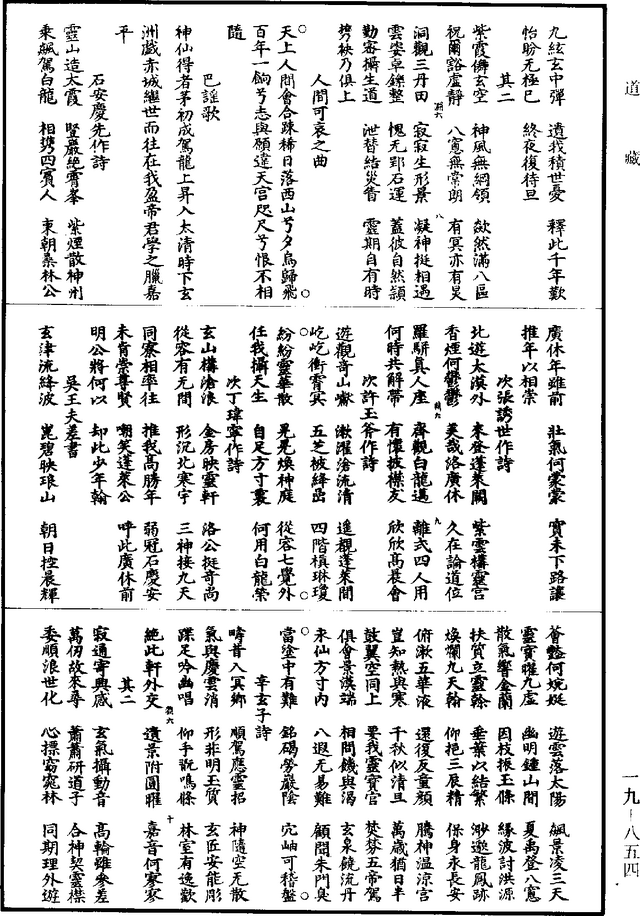 道藏
九絃玄中彈 遺我積世憂 釋此千年歎
怡盼無極已 終夜復待旦
其二
紫霞儛玄空 神風無綱領 欻然滿八區
祝爾豁虛靜 八窻無常朗 有冥亦有炅
洞觀三丹田 寂寂生形景 凝神挺相遇
雲姿卓鑠整 愧无郢石運 蓋彼自然穎
勤密攝生道 泄替結災眚 靈期自有時
携袂乃俱上
人間可哀之曲
天上人間會合疎稀日落西山兮夕烏歸飛
百年一餉兮志與願違天宮咫尺兮恨不相
隨
巴謠歌
神仙得者茅初成駕龍上昇入太清時下玄
洲戲赤城繼世而往在我盈帝君學之臘嘉
平
石安慶先作詩
靈山造太霞 豎巖絶霄峯 紫煙散神州
乘飆駕白龍 相携四賓人 東朝桑林公
廣休年雖前 壯氣何蒙蒙 實未下路讓
推年以相崇
次張誘世作詩
北遊太漠外 來登蓬萊闕 紫雲構靈宮
香煙何鬱鬱 美哉洛廣休 久在論道位
羅駢真人座 齊觀白龍邁 離式四人用
何時共解帶 有懷披襟友 欣欣高晨會
次許玉斧作詩
遊觀奇山 漱濯滄流清 遥觀蓬萊間
屹屹衝霄冥 五芝被絳嵒 四階植琳瓊
紛紛靈華散 晃晃煥神庭 從容七覺外
任我攝天生 自足方寸裏 何用白龍榮
次丁瑋寧作詩
玄山構滄浪 金房映靈軒 洛公挺奇尚
從容有无間 形沉北寒宇 三神接九天
同寮相率往 推我高勝年 弱冠石慶安
未肯崇尊賢 嘲笑蓬萊公 呼此廣休前
明公將何以 却此少年翰
吳王夫差書
玄津流絳波 崑碧映琅山 朝日控晨輝
薈豔何婉娫 遊雲落太陽 飆景凌三天
靈寶曜九虛 幽明鍾山間 夏禹登八窻
散氣響金蘭 因枝振玉條 緣波討洪源
扶質立靈幹 垂葉以結繁 渺邈龍鳳跡
煥爛九天翰 仰挹三辰精 保身永長安
俯漱五華液 還復反童顏 騰神温涼宮
豈知熱與寒 千秋似清旦 萬歲猶日半
鼓翼空同上 要我靈寶宮 焚芬五帝駕
俱會景漢端 相問饑與渴 玄泉饒流丹
永仙方寸内 八遐无易難 顧問朱門臭
當塗中有難 銘碣勞巖陰 穴岫可稽盤
辛玄子詩
疇昔入冥鄉 順駕應靈招 神隨空无散
氣與慶雲消 形非明玉質 玄匠安能彫
蹀足吟幽唱 仰手翫鳴條 林室有逸歡
絶此軒外交 遺景附圓曜 嘉音何寥寥
其二
寂通寄興感 玄氣攝動音 高輪雖參差
萬仞故來尋 蕭蕭研道子 合神契靈襟
委順浪世化 心摽窈窕林 同期理外遊
一九—八五四